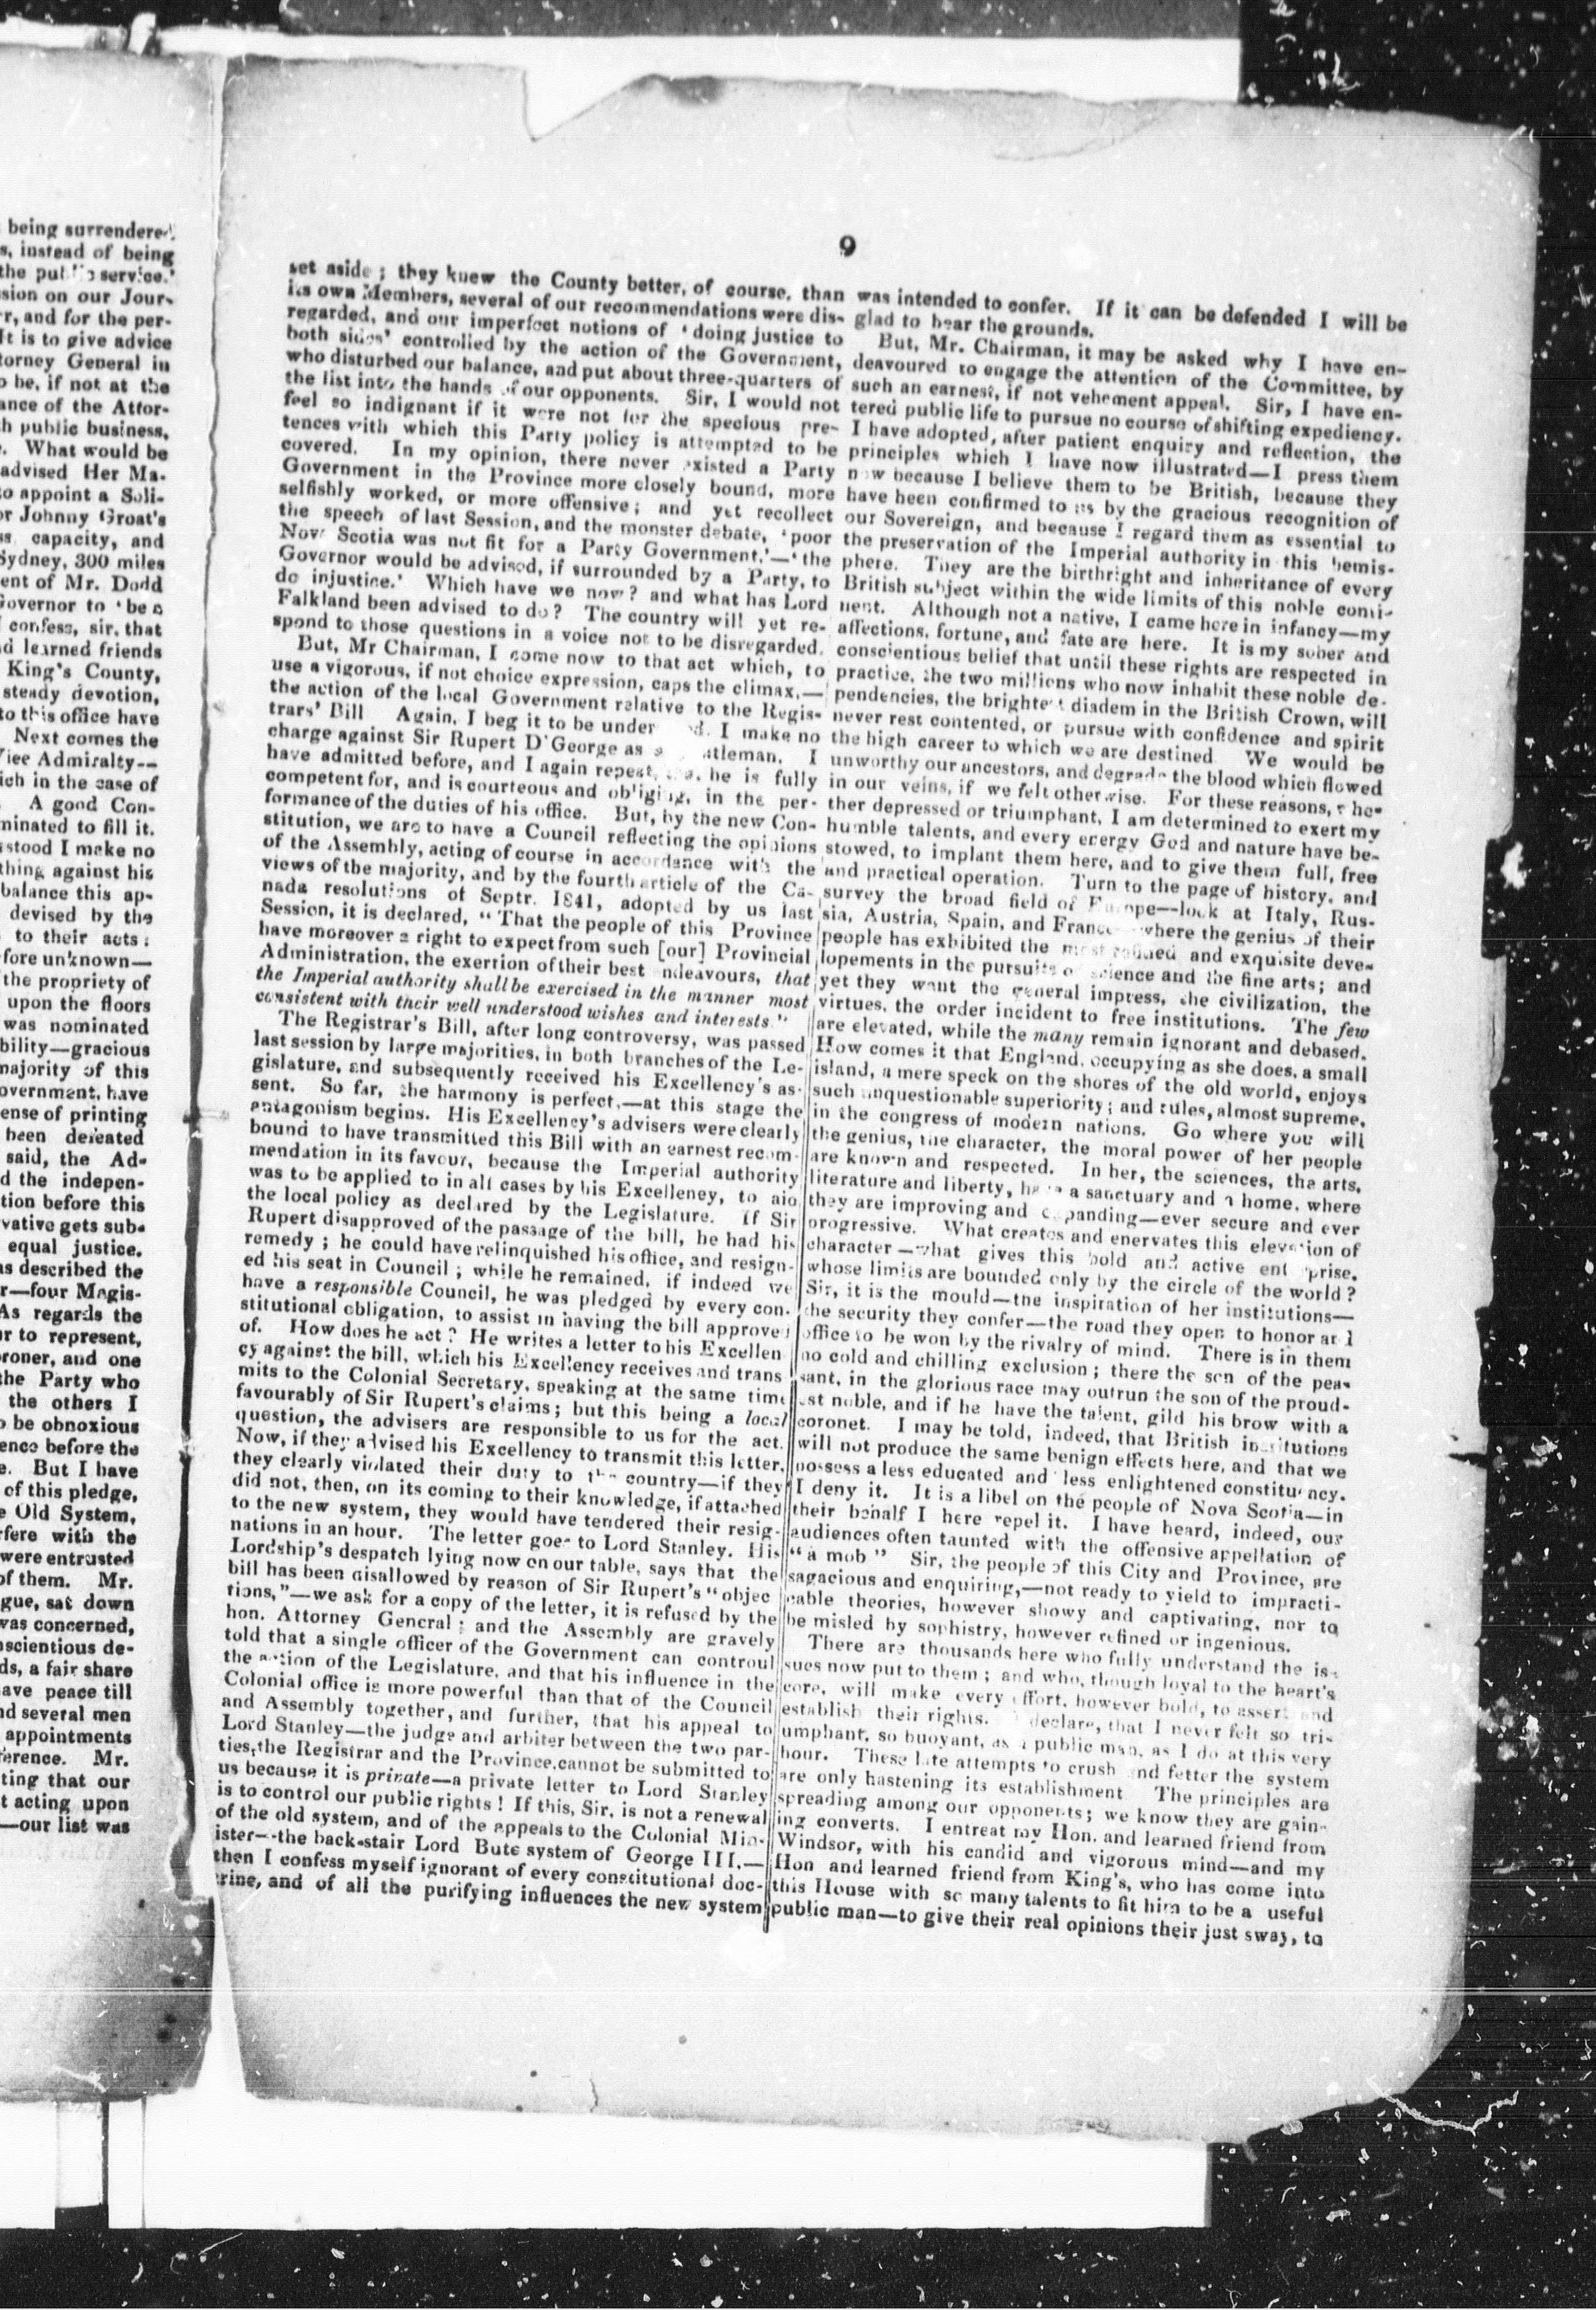 being surrendered.
s, instead of being
the public service.'
sion on our Jour-
r, and for the per-
It is to give advice
torney General in
o be, if not at the
ance of the Attor-
h public business,
. What would be
advised Her Ma-
to appoint a Soli-
or Johnny Groat's
ss capacity, and
Sydney, 300 miles
ent of Mr. Dodd
Governor to 'be a
confess, sir, that
d learned friends
King's County,
steady devotion,
to this office have
Next comes the
Vice Admiralty--
ich in the case of
. A good Con-
minated to fill it.
stood I make no
thing against his
balance this ap-
devised by the
to their acts:
fore unknown—
the propriety of
upon the floors
was nominated
bility—gracious
majority of this
overnment, have
ense of printing
been defeated
said, the Ad-
d the indepen-
tion before this
vative gets sub-
equal justice.
as described the
r—four Magis-
As regards the
ur to represent,
oroner, and one
the Party who
the others I
o be obnoxious
ence before the
e. But I have
of this pledge,
e Old System,
fere with the
were entrusted
of them. Mr.
gue, sat down
was concerned,
nscientious de-
ds, a fair share
ave peace till
nd several men
appointments
ference. Mr.
ting that our
t acting upon
—our list was
9
set aside; they knew the County better, of course, than
its own Members, several of our recommendations were dis-
regarded, and our imperfect notions of 'doing justice to
both sides' controlled by the action of the Government,
who disturbed our balance, and put about three-quarters of
the list into the hands of our opponents. Sir, I would not
feel so indignant if it were not for the specious pre-
tences with which this Party policy is attempted to be
covered. In my opinion, there never existed a Party
Government in the Province more closely bound, more
selfishly worked, or more offensive; and yet recollect
the speech of last Session, and the monster debate, 'poor
Nova Scotia was not fit for a Party Government,'—'the
Governor would be advised, if surrounded by a Party, to
do injustice.' Which have we now? and what has Lord
Falkland been advised to do? The country will yet re-
spond to those questions in a voice not to be disregarded.
But, Mr Chairman, I come now to that act which, to
use a vigorous, if not choice expression, caps the climax,—
the action of the local Government relative to the Regis-
trars' Bill Again, I beg it to be under d. I make no
charge against Sir Rupert D'George as a tleman. I
have admitted before, and I again repeat, he is fully
competent for, and is courteous and obliging, in the per-
formance of the duties of his office. But, by the new Con-
stitution, we are to have a Council reflecting the opinions
of the Assembly, acting of course in accordance with the
views of the majority, and by the fourth article of the Ca-
nada resolutions of Septr. 1841, adopted by us last
Session, it is declared, "That the people of this Province
have moreover a right to expect from such [our] Provincial
Administration, the exertion of their best ndeavours, that
the Imperial authority shall be exercised in the manner most
consistent with their well understood wishes and interests."
The Registrar's Bill, after long controversy, was passed
last session by large majorities, in both branches of the Le-
gislature, and subsequently received his Excellency's as-
sent. So far, the harmony is perfect,—at this stage the
antagonism begins. His Excellency's advisers were clearly
bound to have transmitted this Bill with an earnest recom-
mendation in its favour, because the Imperial authority
was to be applied to in all cases by his Excellency, to aid
the local policy as declared by the Legislature. If Sir
Rupert disapproved of the passage of the bill, he had his
remedy; he could have relinquished his office, and resign-
ed his seat in Council; while he remained, if indeed we
have a responsible Council, he was pledged by every con-
stitutional obligation, to assist in having the bill approved
of. How does he act? He writes a letter to his Excellen
cy against the bill, which his Excellency receives and trans
mits to the Colonial Secretary, speaking at the same time
favourably of Sir Rupert's claims; but this being a local
question, the advisers are responsible to us for the act.
Now, if they advised his Excellency to transmit this letter,
they clearly violated their duty to the country—if they
did not, then, on its coming to their knowledge, if attached
to the new system, they would have tendered their resig-
nations in an hour. The letter goes to Lord Stanley. His
Lordship's despatch lying now on our table, says that the
bill has been disallowed by reason of Sir Rupert's "objec
tions,"—we ask for a copy of the letter, it is refused by the
hon. Attorney General; and the Assembly are gravely
told that a single officer of the Government can controul
the action of the Legislature, and that his influence in the
Colonial office is more powerful than that of the Council
and Assembly together, and further, that his appeal to
Lord Stanley—the judge and arbiter between the two par-
ties, the Registrar and the Province, cannot be submitted to
us because it is private—a private letter to Lord Stanley
is to control our public rights! If this, Sir, is not a renewal
of the old system, and of the appeals to the Colonial Min-
ister--the back-stair Lord Bute system of George III.—
then I confess myself ignorant of every constitutional doc-
trine, and of all the purifying influences the new system
was intended to confer. If it can be defended I will be
glad to hear the grounds.
But, Mr. Chairman, it may be asked why I have en-
deavoured to engage the attention of the Committee, by
such an earnest, if not vehement appeal. Sir, I have en-
tered public life to pursue no course of shifting expediency.
I have adopted, after patient enquiry and reflection, the
principles which I have now illustrated—I press them
now because I believe them to be British, because they
have been confirmed to us by the gracious recognition of
our Sovereign, and because I regard them as essential to
the preservation of the Imperial authority in this hemis-
phere. They are the birthright and inheritance of every
British subject within the wide limits of this noble conti-
nent. Although not a native, I came here in infancy—my
affections, fortune, and fate are here. It is my sober and
conscientious belief that until these rights are respected in
practice, the two millions who now inhabit these noble de-
pendencies, the brightest diadem in the British Crown, will
never rest contented, or pursue with confidence and spirit
the high career to which we are destined We would be
unworthy our ancestors, and degrade the blood which flowed
in our veins, if we felt otherwise. For these reasons, whe-
ther depressed or triumphant, I am determined to exert my
humble talents, and every energy God and nature have be-
stowed, to implant them here, and to give them full, free
and practical operation. Turn to the page of history, and
survey the broad field of Europe—look at Italy, Rus-
sia, Austria, Spain, and France where the genius of their
people has exhibited the most refined and exquisite deve-
lopements in the pursuits of science and the fine arts; and
yet they want the general impress, the civilization, the
virtues, the order incident to free institutions. The few
are elevated, while the many remain ignorant and debased.
How comes it that England, occupying as she does, a small
island, a mere speck on the shores of the old world, enjoys
such unquestionable superiority; and rules, almost supreme,
in the congress of modern nations. Go where you will
the genius, the character, the moral power of her people
are known and respected. In her, the sciences, the arts,
literature and liberty, have a sanctuary and a home, where
they are improving and expanding—ever secure and ever
progressive. What creates and enervates this elevation of
character—what gives this bold and active ent prise,
whose limits are bounded only by the circle of the world?
Sir, it is the mould—the inspiration of her institutions—
the security they confer—the road they open to honor and
office to be won by the rivalry of mind. There is in them
no cold and chilling exclusion; there the son of the pea-
sant, in the glorious race may outrun the son of the proud-
est noble, and if he have the talent, gild his brow with a
coronet. I may be told, indeed, that British institutions
will not produce the same benign effects here, and that we
possess a less educated and less enlightened constituency.
I deny it. It is a libel on the people of Nova Scotia—in
their behalf I here repel it. I have heard, indeed, our
audiences often taunted with the offensive appellation of
"a mob" Sir, the people of this City and Province, are
sagacious and enquiring,—not ready to yield to impracti-
cable theories, however showy and captivating, nor to
be misled by sophistry, however refined or ingenious.
There are thousands here who fully understand the is-
sues now put to them; and who, though loyal to the heart's
core, will make every effort, however bold, to assert and
establish their rights. declare, that I never felt so tri-
umphant, so buoyant, as a public man, as I do at this very
hour. These late attempts to crush and fetter the system
are only hastening its establishment The principles are
spreading among our opponents; we know they are gain-
ing converts. I entreat my Hon. and learned friend from
Windsor, with his candid and vigorous mind—and my
Hon and learned friend from King's, who has come into
this House with so many talents to fit him to be a useful
public man—to give their real opinions their just sway, to